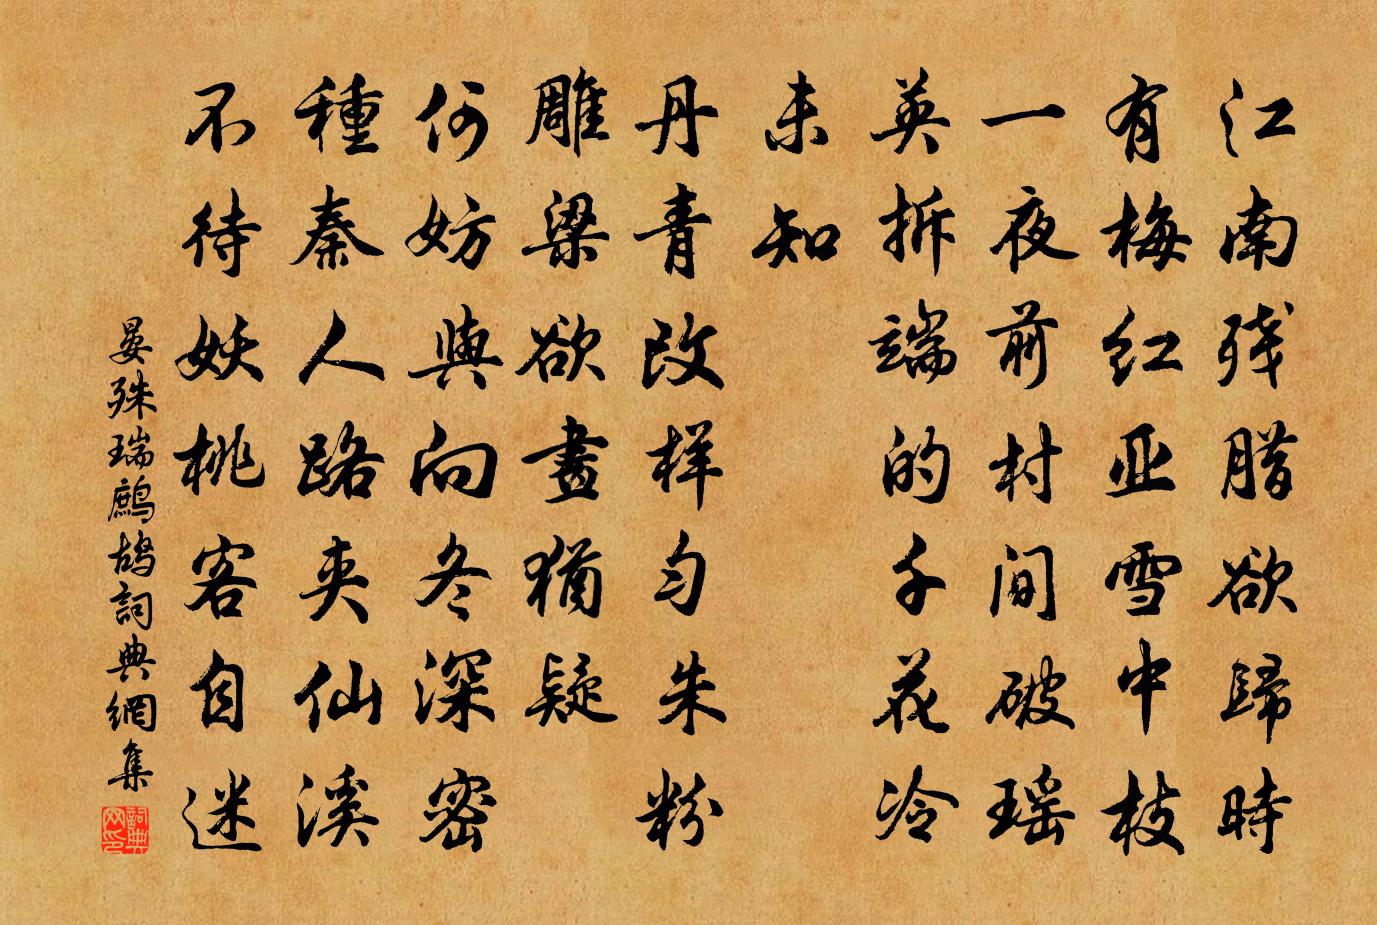 江南残腊欲歸時
有梅红亚雪中枝
一夜前村间破瑶
英拆端的千花冷
未知
丹青改样匀朱粉
雕梁欲畫猶疑
何妨與向冬深密
種秦人路夹仙溪
不待妖桃客自迷
晏殊瑞鹧鸪詞典網集
詞典
网印